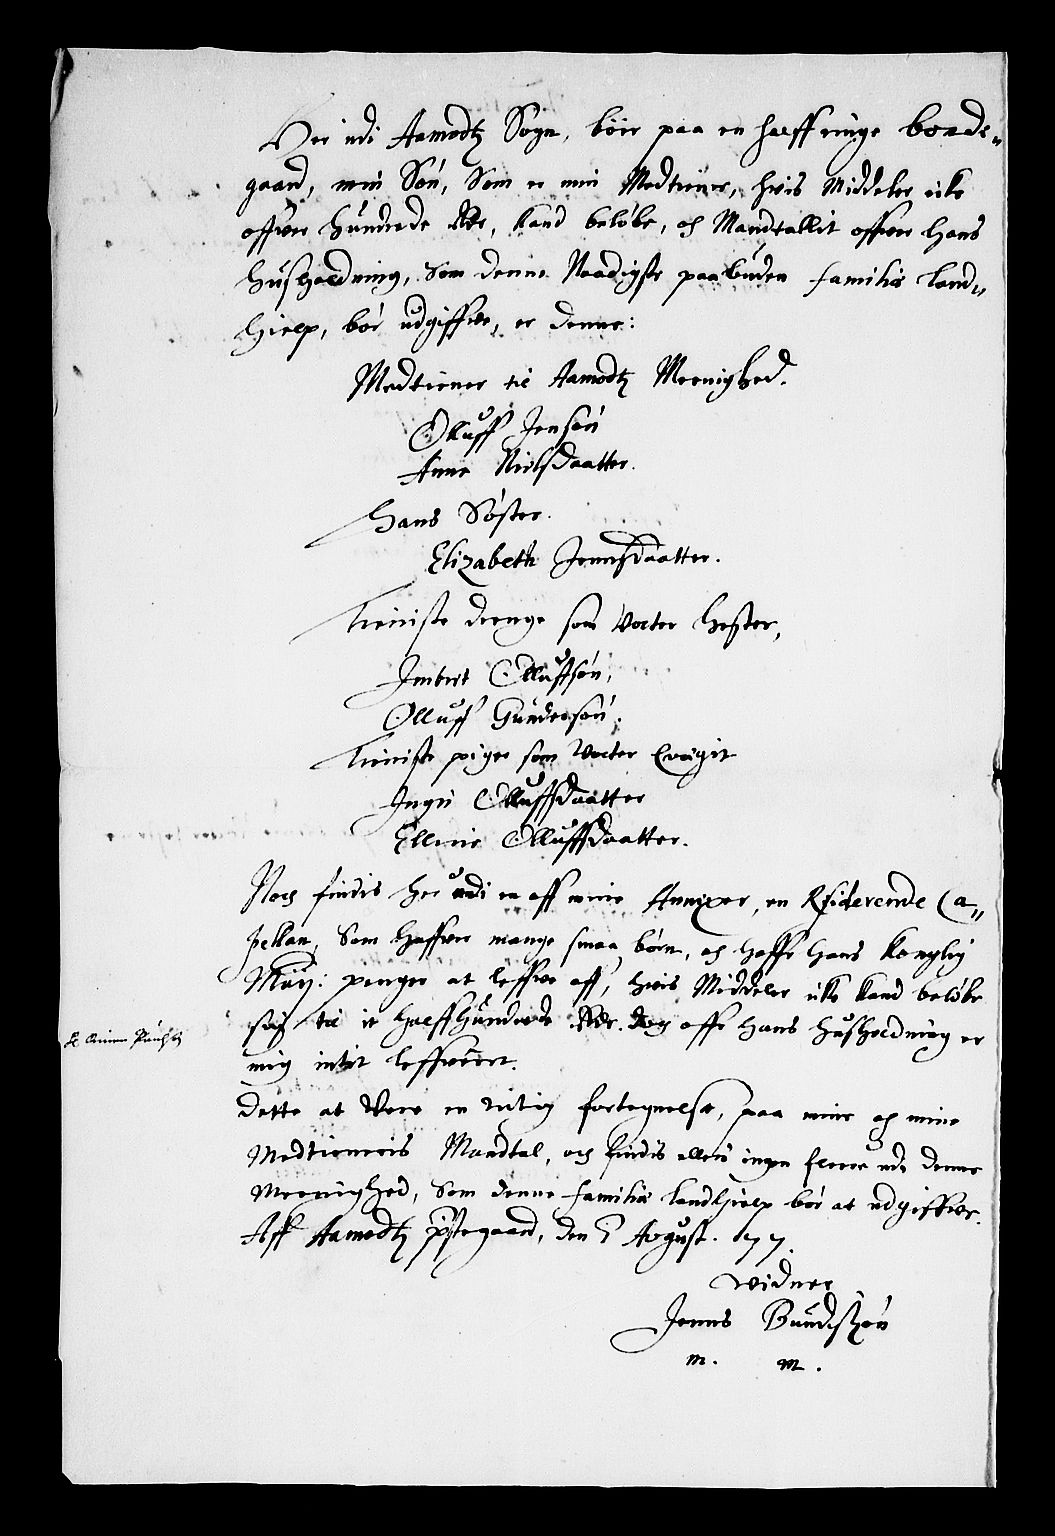 Her udi Aamodtz Sogn, boir paa en halff ringe boade„
gaard, min Søn, Som er min Medtiener, hvis Middeler icke
offver hundrede Rdr, kand beløbe, och Mandtallit offver hans
husholdning, Som denne Naadigste paabuden familiæ land„
hielp, bør udgiffve, er denne:
Medtiener til Aamodtz Meenighed.
Oluff Jensøn
Anne Nielsdaatter.
Hans Søster.
Elizabeth Jennsdaatter.
Tieniste drenge som Vocter hester,
Imbret Olluffsøn,
Olluff Gundersøn.
Tieniste piger som Vocter Qvegit
Ingri Olluffsdaatter
Elline Olluffsdaatter.
Noch findis her udi en aff mine Annexer, en Residerende Ca„
pellan, Som haffver mange smaa børn, och haffr hans Konglig
Mayz: penger at leffve aff, hvis Middeler icke kand beløbe
sig til it halff hundrede Rdr. dog offr hans husholdning er
mig intit leffverert.
Dette at Vere en rictig fortegnelse, paa mine och mine
Medtieneris Mandtal, och findis ellers ingen fleere udi denne
Meenighed, Som denne familiæ landhielp bør at udgiffve.
Aff Aamodtz prestegaard, den August. 77.
Vidner
Jenns Bundessøn
m. m.